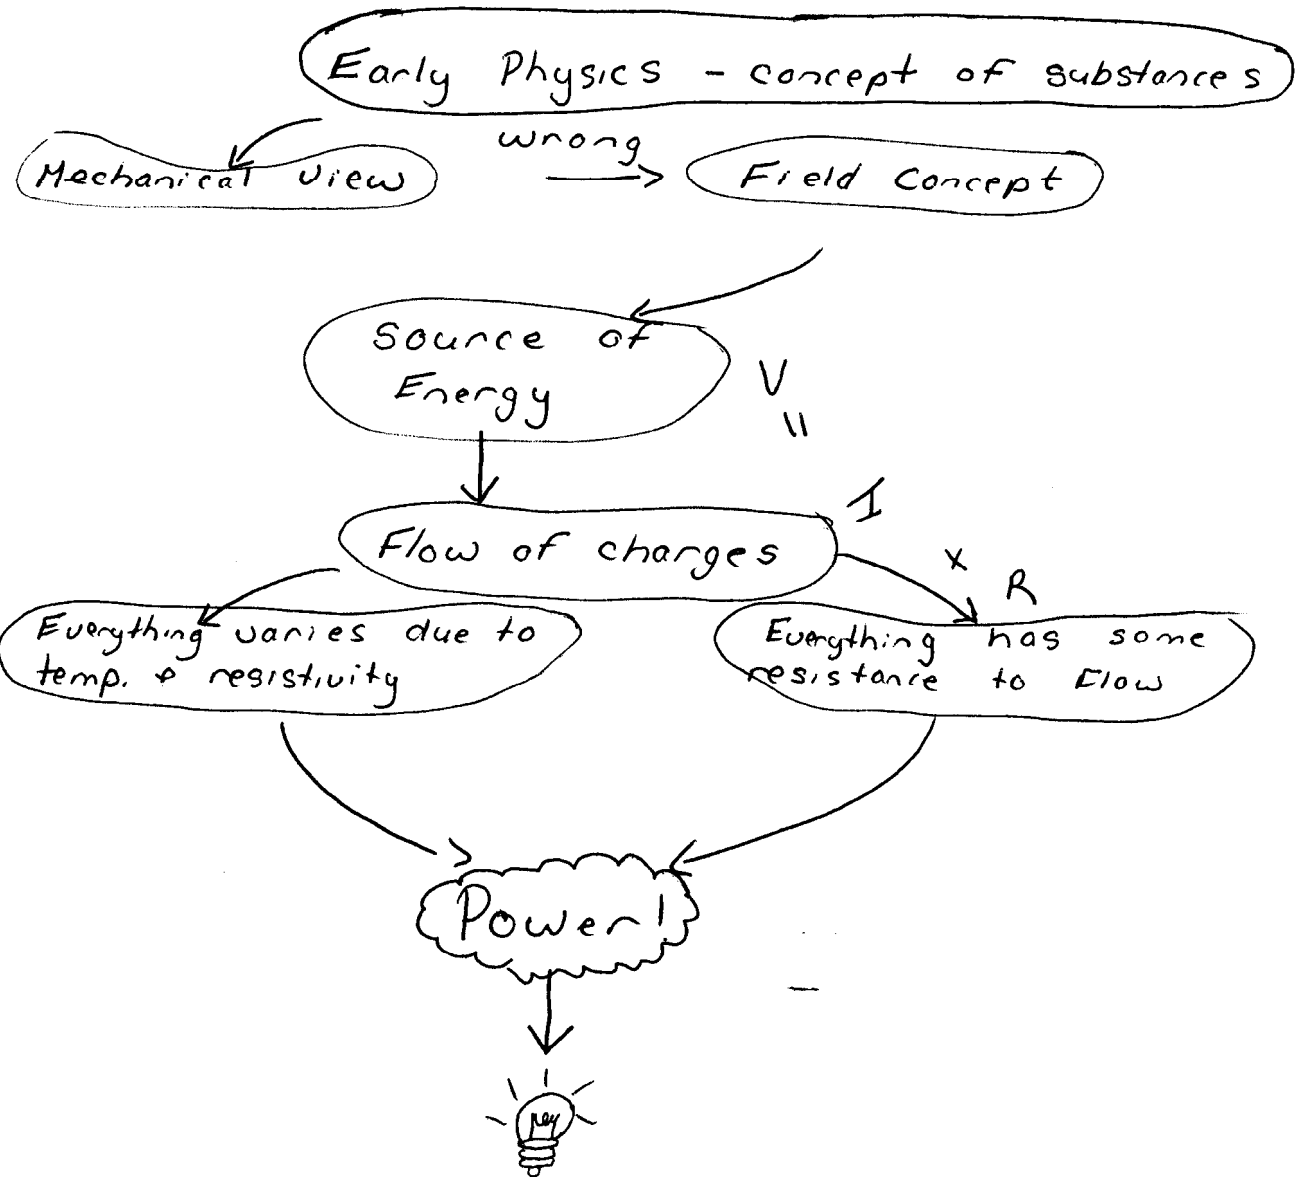 Early Physics - concept of substances
wrong
Mechanical View
Field Concept
Source of
Energy
V
=
I
Flow of charges
x
R
Everything varies due to
temp. & resistivity
Everything has some
resistance to Flow
Power!